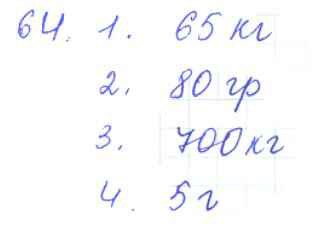 64. 1. 65 кг
2. 80 гр
3. 700 кг
4. 5 г